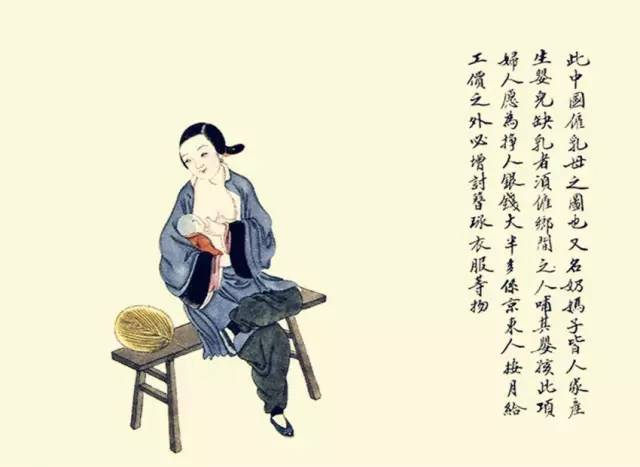 此中國僱乳母之圖也又名奶媽子皆人家產
生嬰兒缺乳者須僱鄉間之人哺其嬰孩此項
婦人愿為掙人銀錢大半多係京東人按月給
工價之外必增討簪珠衣服等物